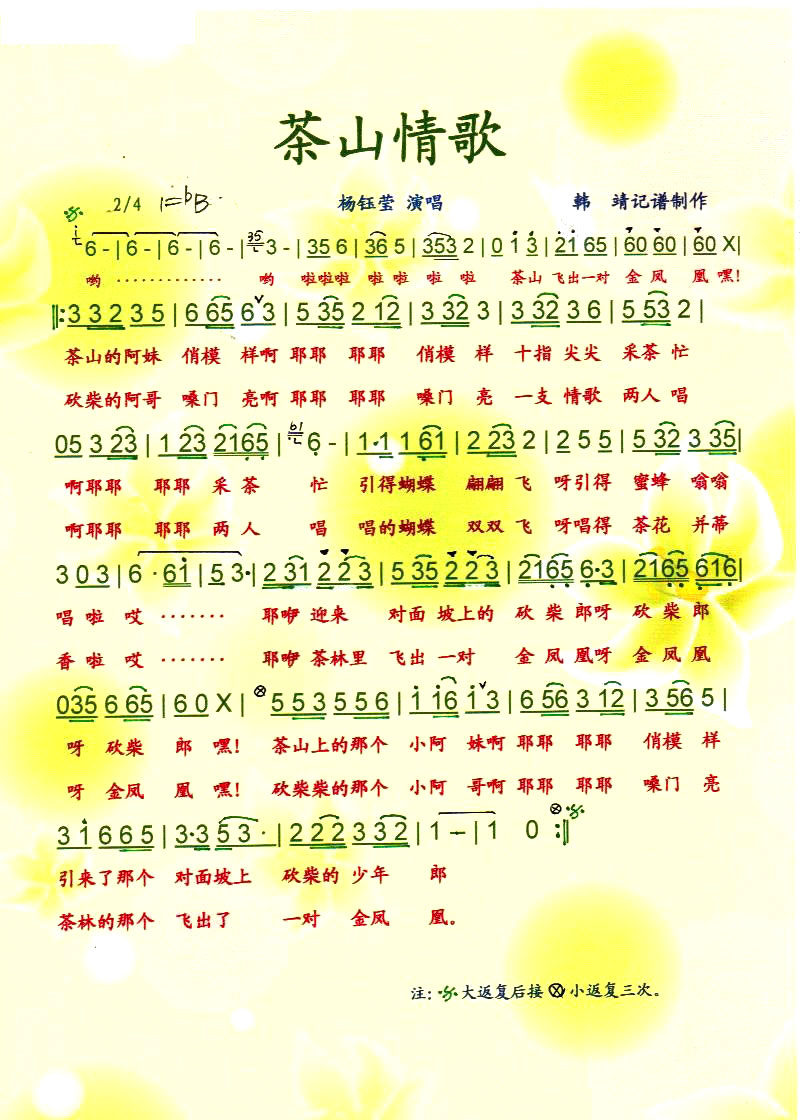 茶山情歌
2/4 1=bB 杨钰莹 演唱 韩 靖记谱制作
6 - | 6 - | 6 - | 6 - | 3 - | 35 6 | 36 5 | 353 2 | 0 1 3 | 21 65 | 60 60 | 60 X |
哟 ············· 哟 啦啦啦 啦 啦 啦 啦 茶山 飞出一对 金 凤 凰 嘿!
‖: 3 3 2 3 5 | 6 65 6 3 | 5 35 2 12 | 3 32 3 | 3 32 3 6 | 5 53 2 |
茶山的阿妹 俏模 样啊 耶耶 耶耶 俏模 样 十指 尖尖 采茶 忙
砍柴的阿哥 嗓门 亮啊 耶耶 耶耶 嗓门 亮 一支 情歌 两人 唱
05 3 23 | 1 23 2165 | 6 - | 1·1 1 61 | 2 23 2 | 2 5 5 | 5 32 3 35 |
啊耶耶 耶耶 采 茶 忙 引得蝴蝶 翩翩 飞 呀引得 蜜蜂 嗡嗡
啊耶耶 耶耶 两 人 唱 唱的蝴蝶 双双 飞 呀唱得 茶花 并蒂
3 0 3 | 6 · 61 | 5 3· | 2 31 2 2 3 | 5 35 2 2 3 | 2165 6·3 | 2165 616 |
唱 啦 哎 ······· 耶咿 迎来 对面 坡上的 砍 柴 郎呀 砍 柴 郎
香 啦 哎 ······· 耶咿 茶林里 飞出 一对 金 凤 凰呀 金 凤 凰
035 6 65 | 6 0 X | ⊗ 5 5 3 5 5 6 | 1 16 1 3 | 6 56 3 12 | 3 56 5 |
呀 砍柴 郎 嘿! 茶山上的那个 小阿 妹啊 耶耶 耶耶 俏模 样
呀 金凤 凰 嘿! 砍柴柴的那个 小阿 哥啊 耶耶 耶耶 嗓门 亮
3 1 6 6 5 | 3·3 5 3 · | 2 2 2 3 3 2 | 1 - | 1 0 :‖
引来了那个 对面坡上 砍柴的 少年 郎
茶林的那个 飞出了 一对 金凤 凰。
注: 大返复后接 ⊗ 小返复三次。